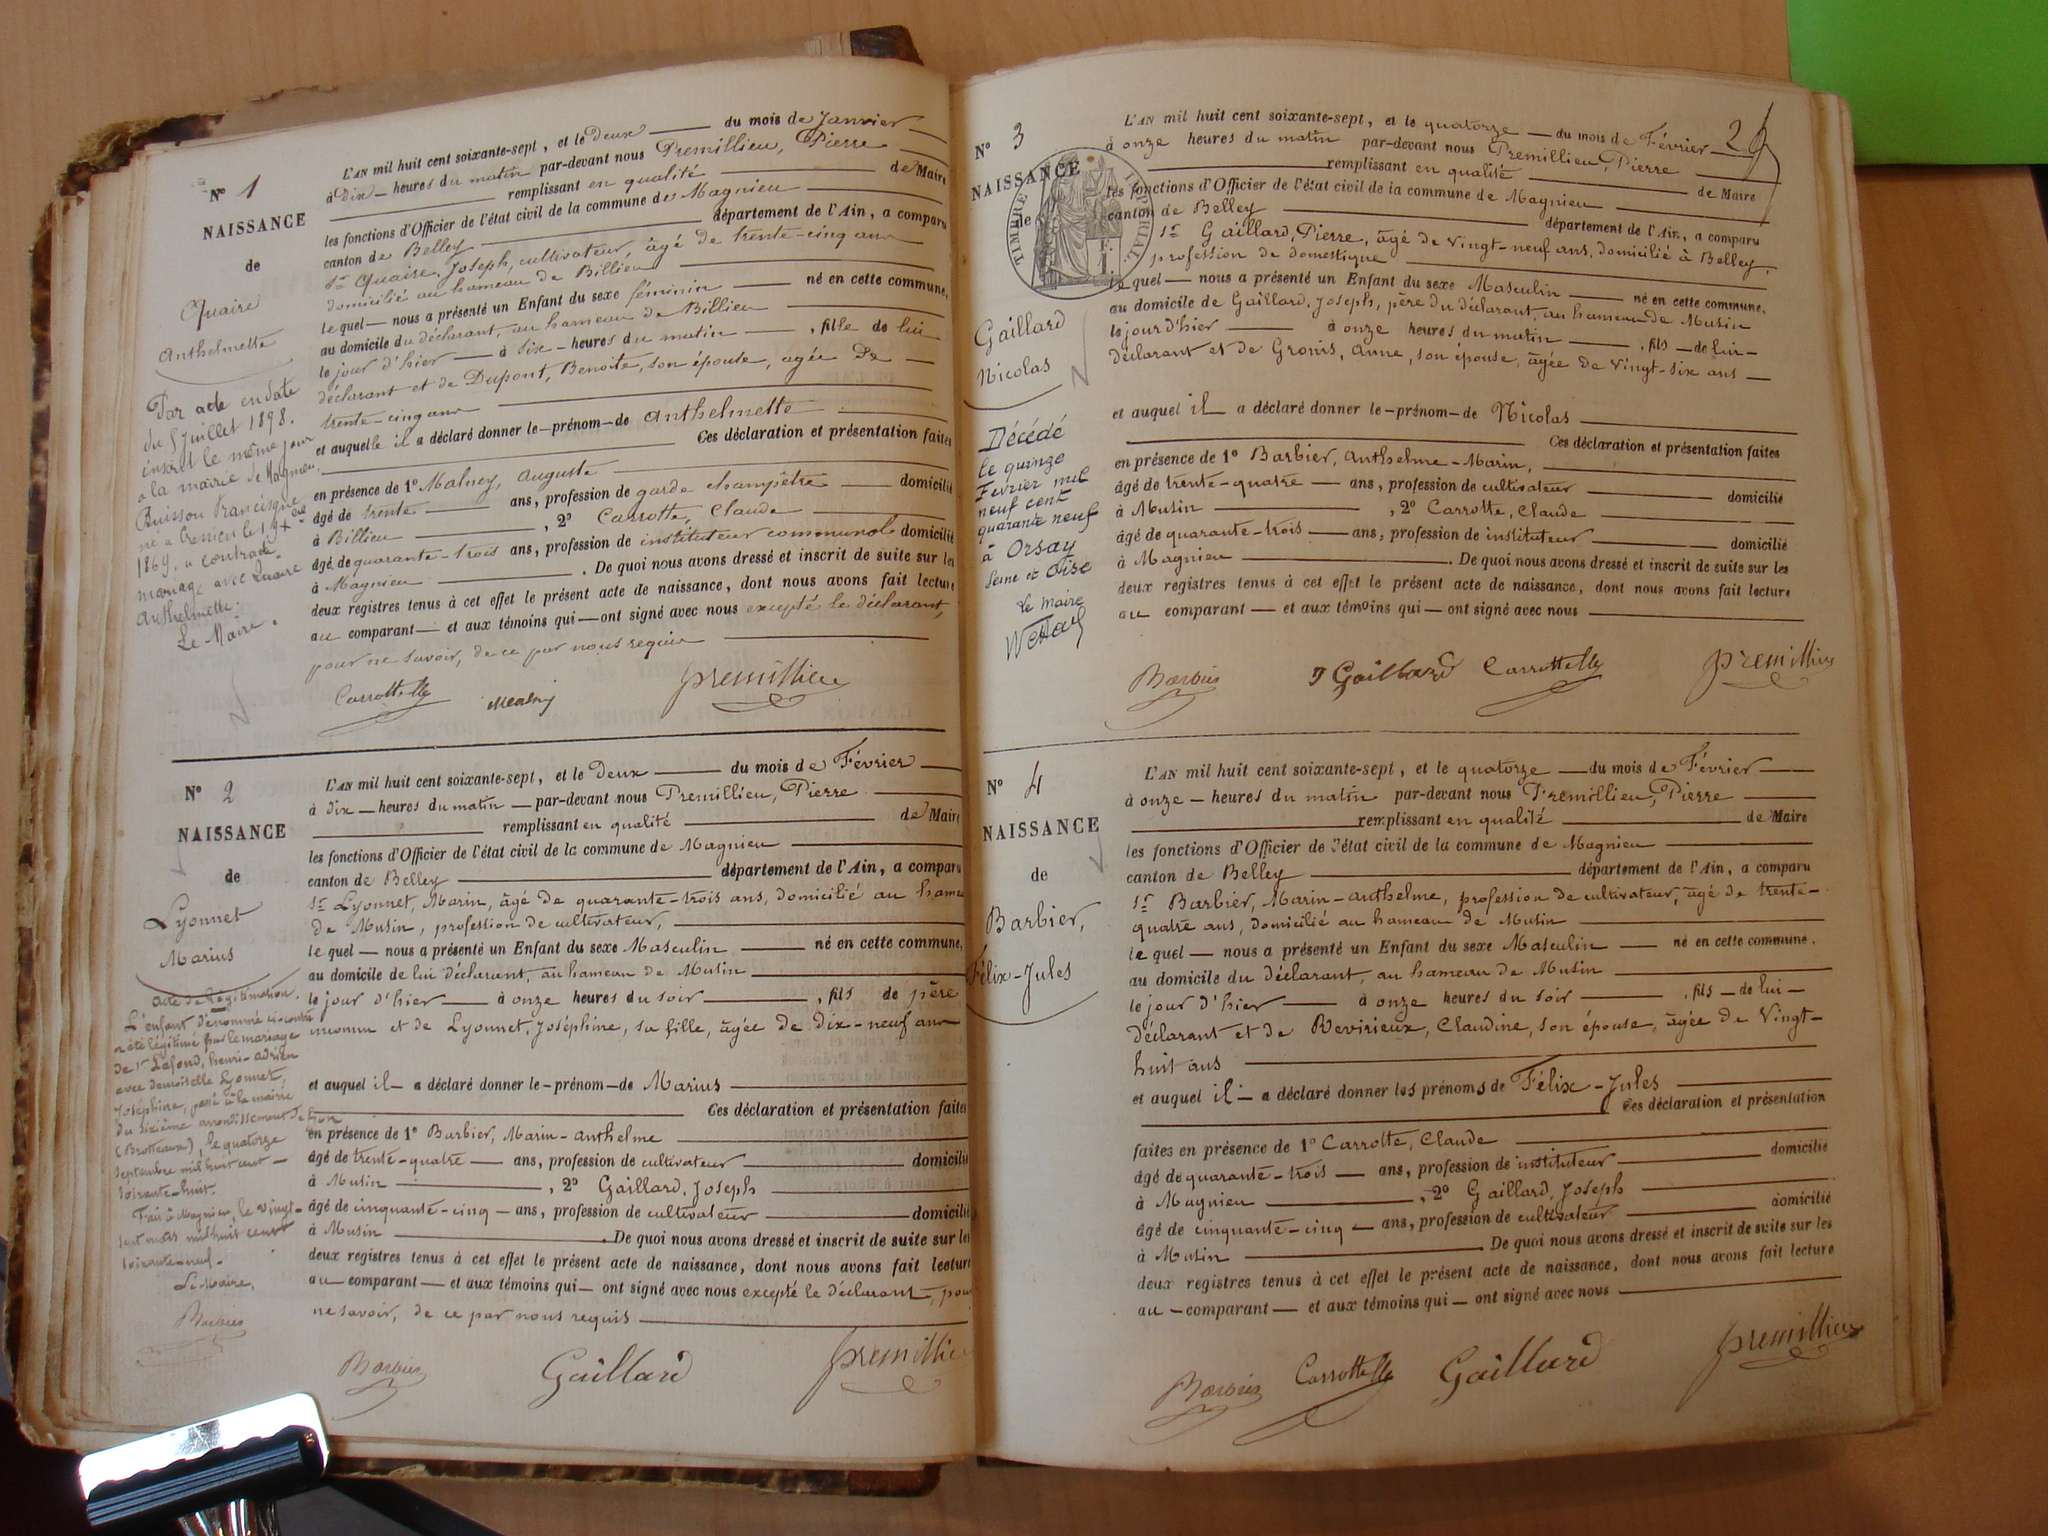 N° 1
NAISSANCE
de
Quaire
Anthelmette
Par acte en date
du 5 Juillet 1898.
inscrit le même jour
a la mairie de Magnieu,
Buisson Francisque
né a Cressieu le 19
1869, a contracté
mariage avec Quaire
Anthelmette.
Le Maire.
L'AN mil huit cent soixante-sept, et le Deux du mois de Janvier
à dix heures du matin par-devant nous Premillieu, Pierre
remplissant en qualité de Maire
les fonctions d'Officier de l'état civil de la commune de Magnieu
canton de Belley département de l'Ain, a comparu
Sr Quaire, Joseph, cultivateur, âgé de trente-cinq ans
domicilié au hameau de Billieu
le quel nous a présenté un Enfant du sexe féminin né en cette commune,
au domicile du déclarant, au hameau de Billieu
le jour d'hier à six heures du matin, fille de lui
déclarant et de Dupont, Benoite, son épouse, agée de
trente-cinq ans
et auquelle il a déclaré donner le prénom de Anthelmette
Ces déclaration et présentation faites
en présence de 1° Malney, Auguste
âgé de trente ans, profession de garde champêtre domicilié
à Billieu, 2° Carrotte, Claude
âgé de quarante-trois ans, profession de instituteur communal domicilié
à Magnieu. De quoi nous avons dressé et inscrit de suite sur les
deux registres tenus à cet effet le présent acte de naissance, dont nous avons fait lecture
au comparant et aux témoins qui ont signé avec nous excepté le déclarant,
pour ne savoir, de ce par nous requis
Carrotte Malney Premillieu
N° 2
NAISSANCE
de
Lyonnet
Marius
Acte de Légitimation.
L'enfant dénommé ci-contre
a été légitimé par le mariage
de Sr Lafond, henri-Adrien
avec demoiselle Lyonnet,
Joséphine, passé à la mairie
du sixième arrondissement de Lyon
(Brotteaux), le quatorze
septembre mil huit cent
soixante-huit.
Fait à Magnieu, le vingt-
sept mars mil huit cent
soixante-neuf.
Le Maire,
Barbier
L'AN mil huit cent soixante-sept, et le Deux du mois de Février
à dix heures du matin par-devant nous Premillieu, Pierre
remplissant en qualité de Maire
les fonctions d'Officier de l'état civil de la commune de Magnieu
canton de Belley département de l'Ain, a comparu
Sr Lyonnet, Marin, âgé de quarante-trois ans, domicilié au hameau
de Musin, profession de cultivateur,
le quel nous a présenté un Enfant du sexe Masculin né en cette commune,
au domicile de lui déclarant, au hameau de Musin
le jour d'hier à onze heures du soir, fils de père
inconnu et de Lyonnet, Joséphine, sa fille, âgée de dix-neuf ans
et auquel il a déclaré donner le prénom de Marius
Ces déclaration et présentation faites
en présence de 1° Barbier, Marin-Anthelme
âgé de trente-quatre ans, profession de cultivateur domicilié
à Musin, 2° Gaillard, Joseph
âgé de cinquante-cinq ans, profession de cultivateur domicilié
à Musin. De quoi nous avons dressé et inscrit de suite sur les
deux registres tenus à cet effet le présent acte de naissance, dont nous avons fait lecture
au comparant et aux témoins qui ont signé avec nous excepté le déclarant, pour
ne savoir, de ce par nous requis
Barbier Gaillard Premillieu
N° 3
NAISSANCE
de
TIMBRE IMPERIAL
Gaillard
Nicolas
Décédé
le quinze
Février mil
neuf cent
quarante neuf
à Orsay
Seine et Oise
Le Maire
2
L'AN mil huit cent soixante-sept, et le quatorze du mois de Février
à onze heures du matin par-devant nous Premillieu, Pierre
remplissant en qualité de Maire
les fonctions d'Officier de l'état civil de la commune de Magnieu
canton de Belley département de l'Ain, a comparu
Sr Gaillard, Pierre, âgé de vingt-neuf ans, domicilié à Belley,
profession de domestique
le quel nous a présenté un Enfant du sexe Masculin né en cette commune,
au domicile de Gaillard, Joseph, père du déclarant, au hameau de Musin
le jour d'hier à onze heures du matin, fils de lui
déclarant et de Gronis, Anne, son épouse, âgée de vingt-six ans
et auquel il a déclaré donner le prénom de Nicolas
Ces déclaration et présentation faites
en présence de 1° Barbier, Anthelme-Marin,
âgé de trente-quatre ans, profession de cultivateur domicilié
à Musin, 2° Carrotte, Claude
âgé de quarante-trois ans, profession de instituteur domicilié
à Magnieu. De quoi nous avons dressé et inscrit de suite sur les
deux registres tenus à cet effet le présent acte de naissance, dont nous avons fait lecture
au comparant et aux témoins qui ont signé avec nous
Barbier P Gaillard Carrotte Premillieu
N° 4
NAISSANCE
de
Barbier,
Félix-Jules
L'AN mil huit cent soixante-sept, et le quatorze du mois de Février
à onze heures du matin par-devant nous Premillieu, Pierre
remplissant en qualité de Maire
les fonctions d'Officier de l'état civil de la commune de Magnieu
canton de Belley département de l'Ain, a comparu
Sr Barbier, Marin-Anthelme, profession de cultivateur, âgé de trente-
quatre ans, domicilié au hameau de Musin
le quel nous a présenté un Enfant du sexe Masculin né en cette commune.
au domicile du déclarant, au hameau de Musin
le jour d'hier à onze heures du soir, fils de lui
déclarant et de Revirieux, Claudine, son épouse, âgée de vingt-
huit ans
et auquel il a déclaré donner les prénoms de Félix-Jules
Ces déclaration et présentation
faites en présence de 1° Carrotte, Claude
âgé de quarante-trois ans, profession de instituteur domicilié
à Magnieu, 2° Gaillard, Joseph
âgé de cinquante-cinq ans, profession de cultivateur domicilié
à Musin. De quoi nous avons dressé et inscrit de suite sur les
deux registres tenus à cet effet le présent acte de naissance, dont nous avons fait lecture
au comparant et aux témoins qui ont signé avec nous
Barbier Carrotte Gaillard Premillieu